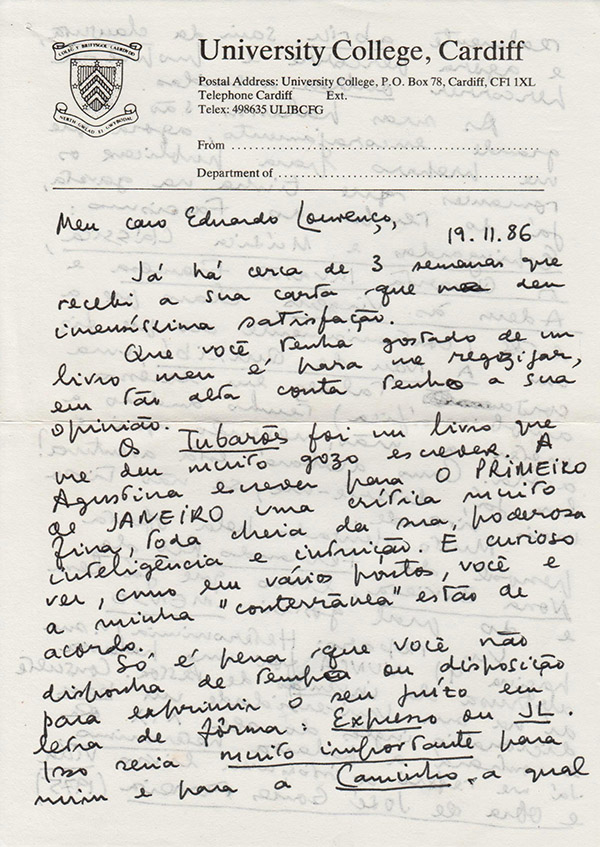 University College, Cardiff
Postal Address: University College, P.O. Box 78, Cardiff, CF1 1XL
Telephone Cardiff Ext.
Telex: 498635 ULIBCFG
From
Department of
Meu caro Eduardo Lourenço,
19.11.86
Já há cerca de 3 semanas que
recebi a sua carta que me deu
imensíssima satisfação.
Que você tenha gostado de um
livro meu é para me regozijar,
em tão alta conta tenho a sua
opinião.
Os Tubarões foi um livro que
me deu muito gozo escrever. A
Agustina escreveu para O PRIMEIRO
de JANEIRO uma crítica muito
fina, toda cheia da sua poderosa
inteligência e intuição. E curioso
ver, como em vários pontos, você e
a minha "conterrânea" estão de
acordo.
Só é pena que você não
disponha de tempo ou disposição
para exprimir o seu juízo em
letra de fôrma: Expresso ou JL.
Isso seria muito importante para
mim e para a Caminho, a qual